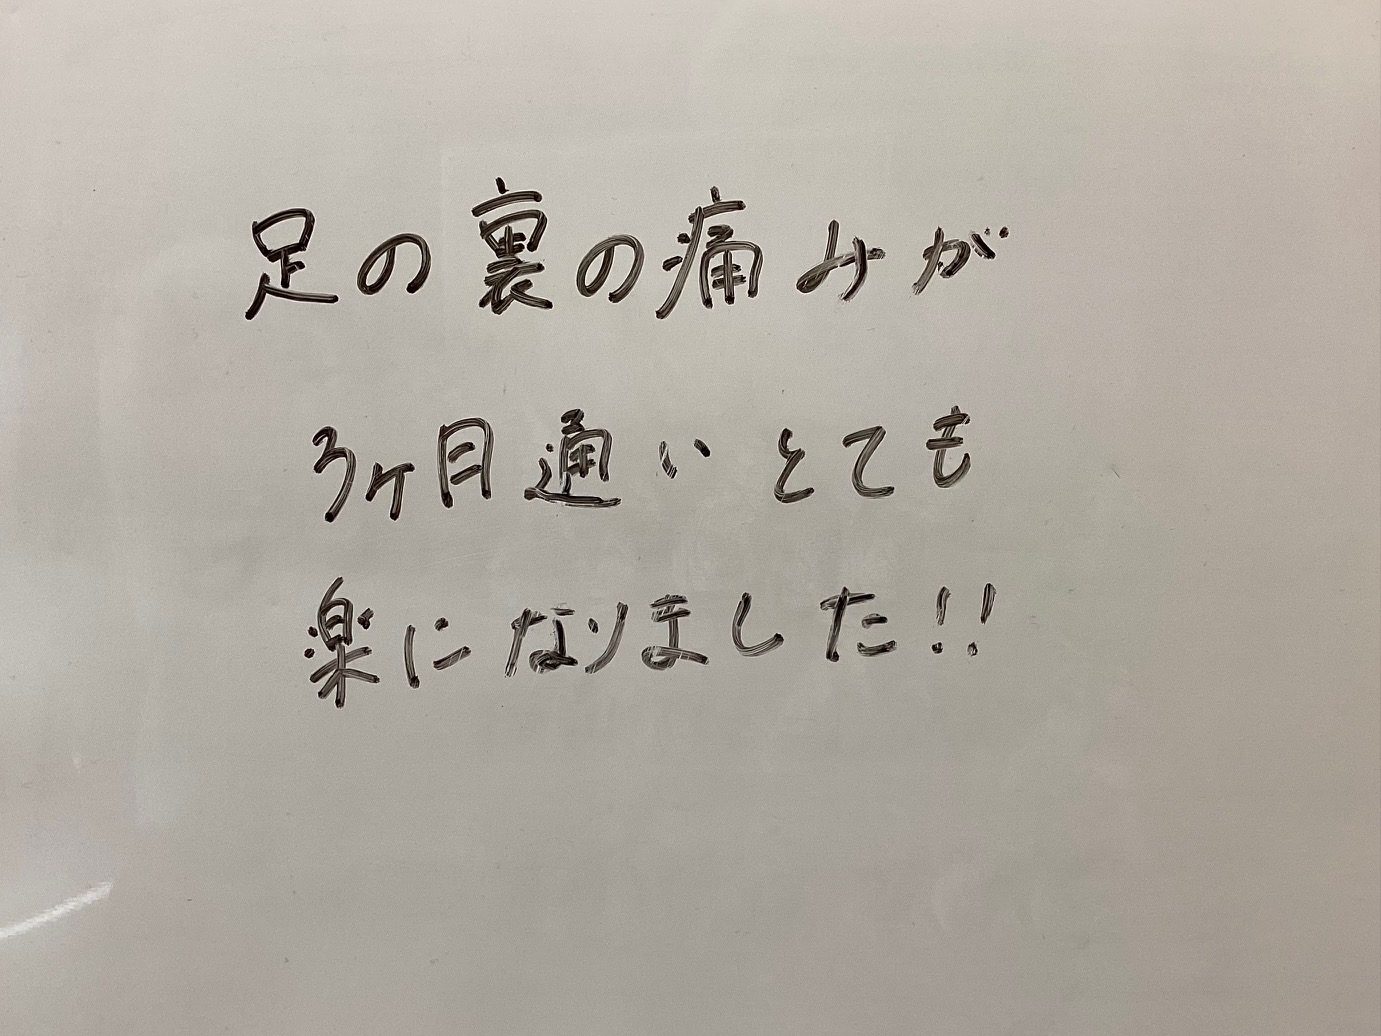 足の裏の痛みが
3ヶ月通いとても
楽になりました!!